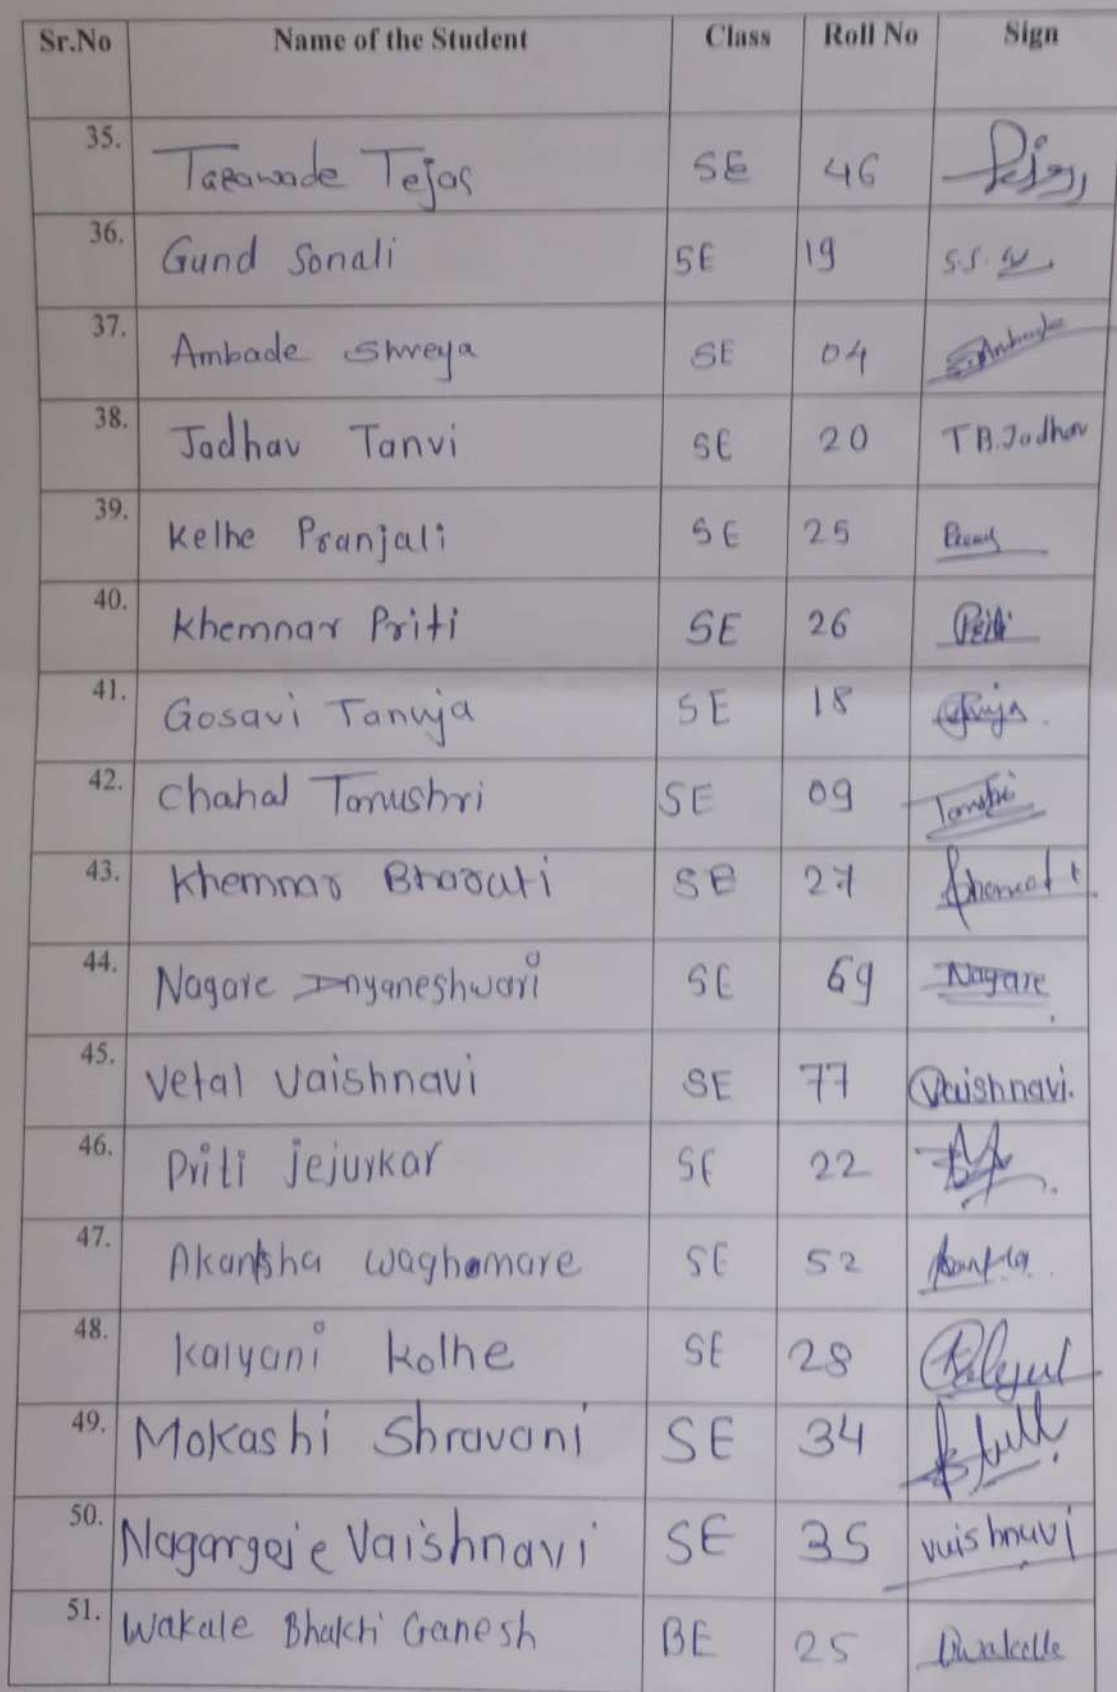 Sr.No Name of the Student Class Roll No Sign
35. Tejas SE 46
36. Gund Sonali SE 19 S.S.
37. Ambade Shreya SE 04 S.Ambade
38. Jadhav Tanvi SE 20 T B.Jadhav
39. Kelhe Pranjali SE 25
40. Khemnar Priti SE 26 Priti
41. Gosavi Tanuja SE 18
42. Chahal Tanushri SE 09
43. Khemnar Bharati SE 27
44. Nagare Dnyaneshwari SE 69 Nagare
45. Vetal Vaishnavi SE 77 Vaishnavi.
46. Priti Jejurkar SE 22
47. Akanksha Waghamare SE 52
48. Kalyani Kolhe SE 28
49. Mokashi Shravani SE 34
50. Nagargoje Vaishnavi SE 35 vaishnavi
51. Wakale Bhakti Ganesh BE 25